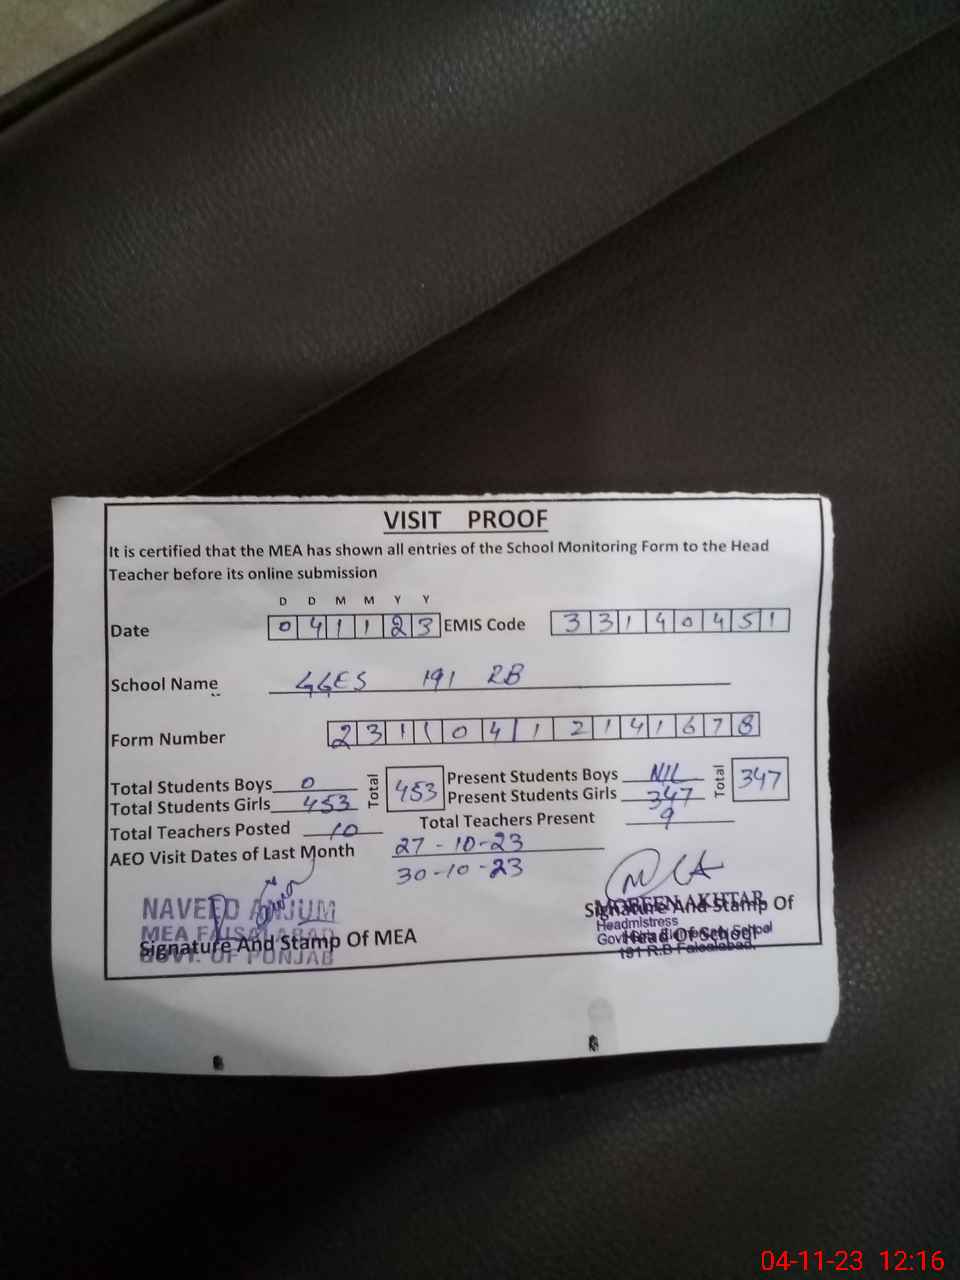 VISIT PROOF
It is certified that the MEA has shown all entries of the School Monitoring Form to the Head
Teacher before its online submission
D D M M Y Y
Date 0 4 1 1 2 3 EMIS Code 3 3 1 4 0 4 5 1
School Name GGES 191 RB
Form Number 2 3 1 1 0 4 1 2 1 4 1 6 7 8
Total Students Boys 0 Total 453 Present Students Boys NIL Total 347
Total Students Girls 453 Present Students Girls 347
Total Teachers Posted 10 Total Teachers Present 9
AEO Visit Dates of Last Month 27-10-23
30-10-23
NAVEED ANJUM
MEA FAISALABAD
GOVT. OF PUNJAB
Signature And Stamp Of MEA
MOBEEN AKHTAR
Signature And Stamp Of
Headmistress
Govt Girls Elementary School
Head Of School
191 R.B Faisalabad.
04-11-23 12:16